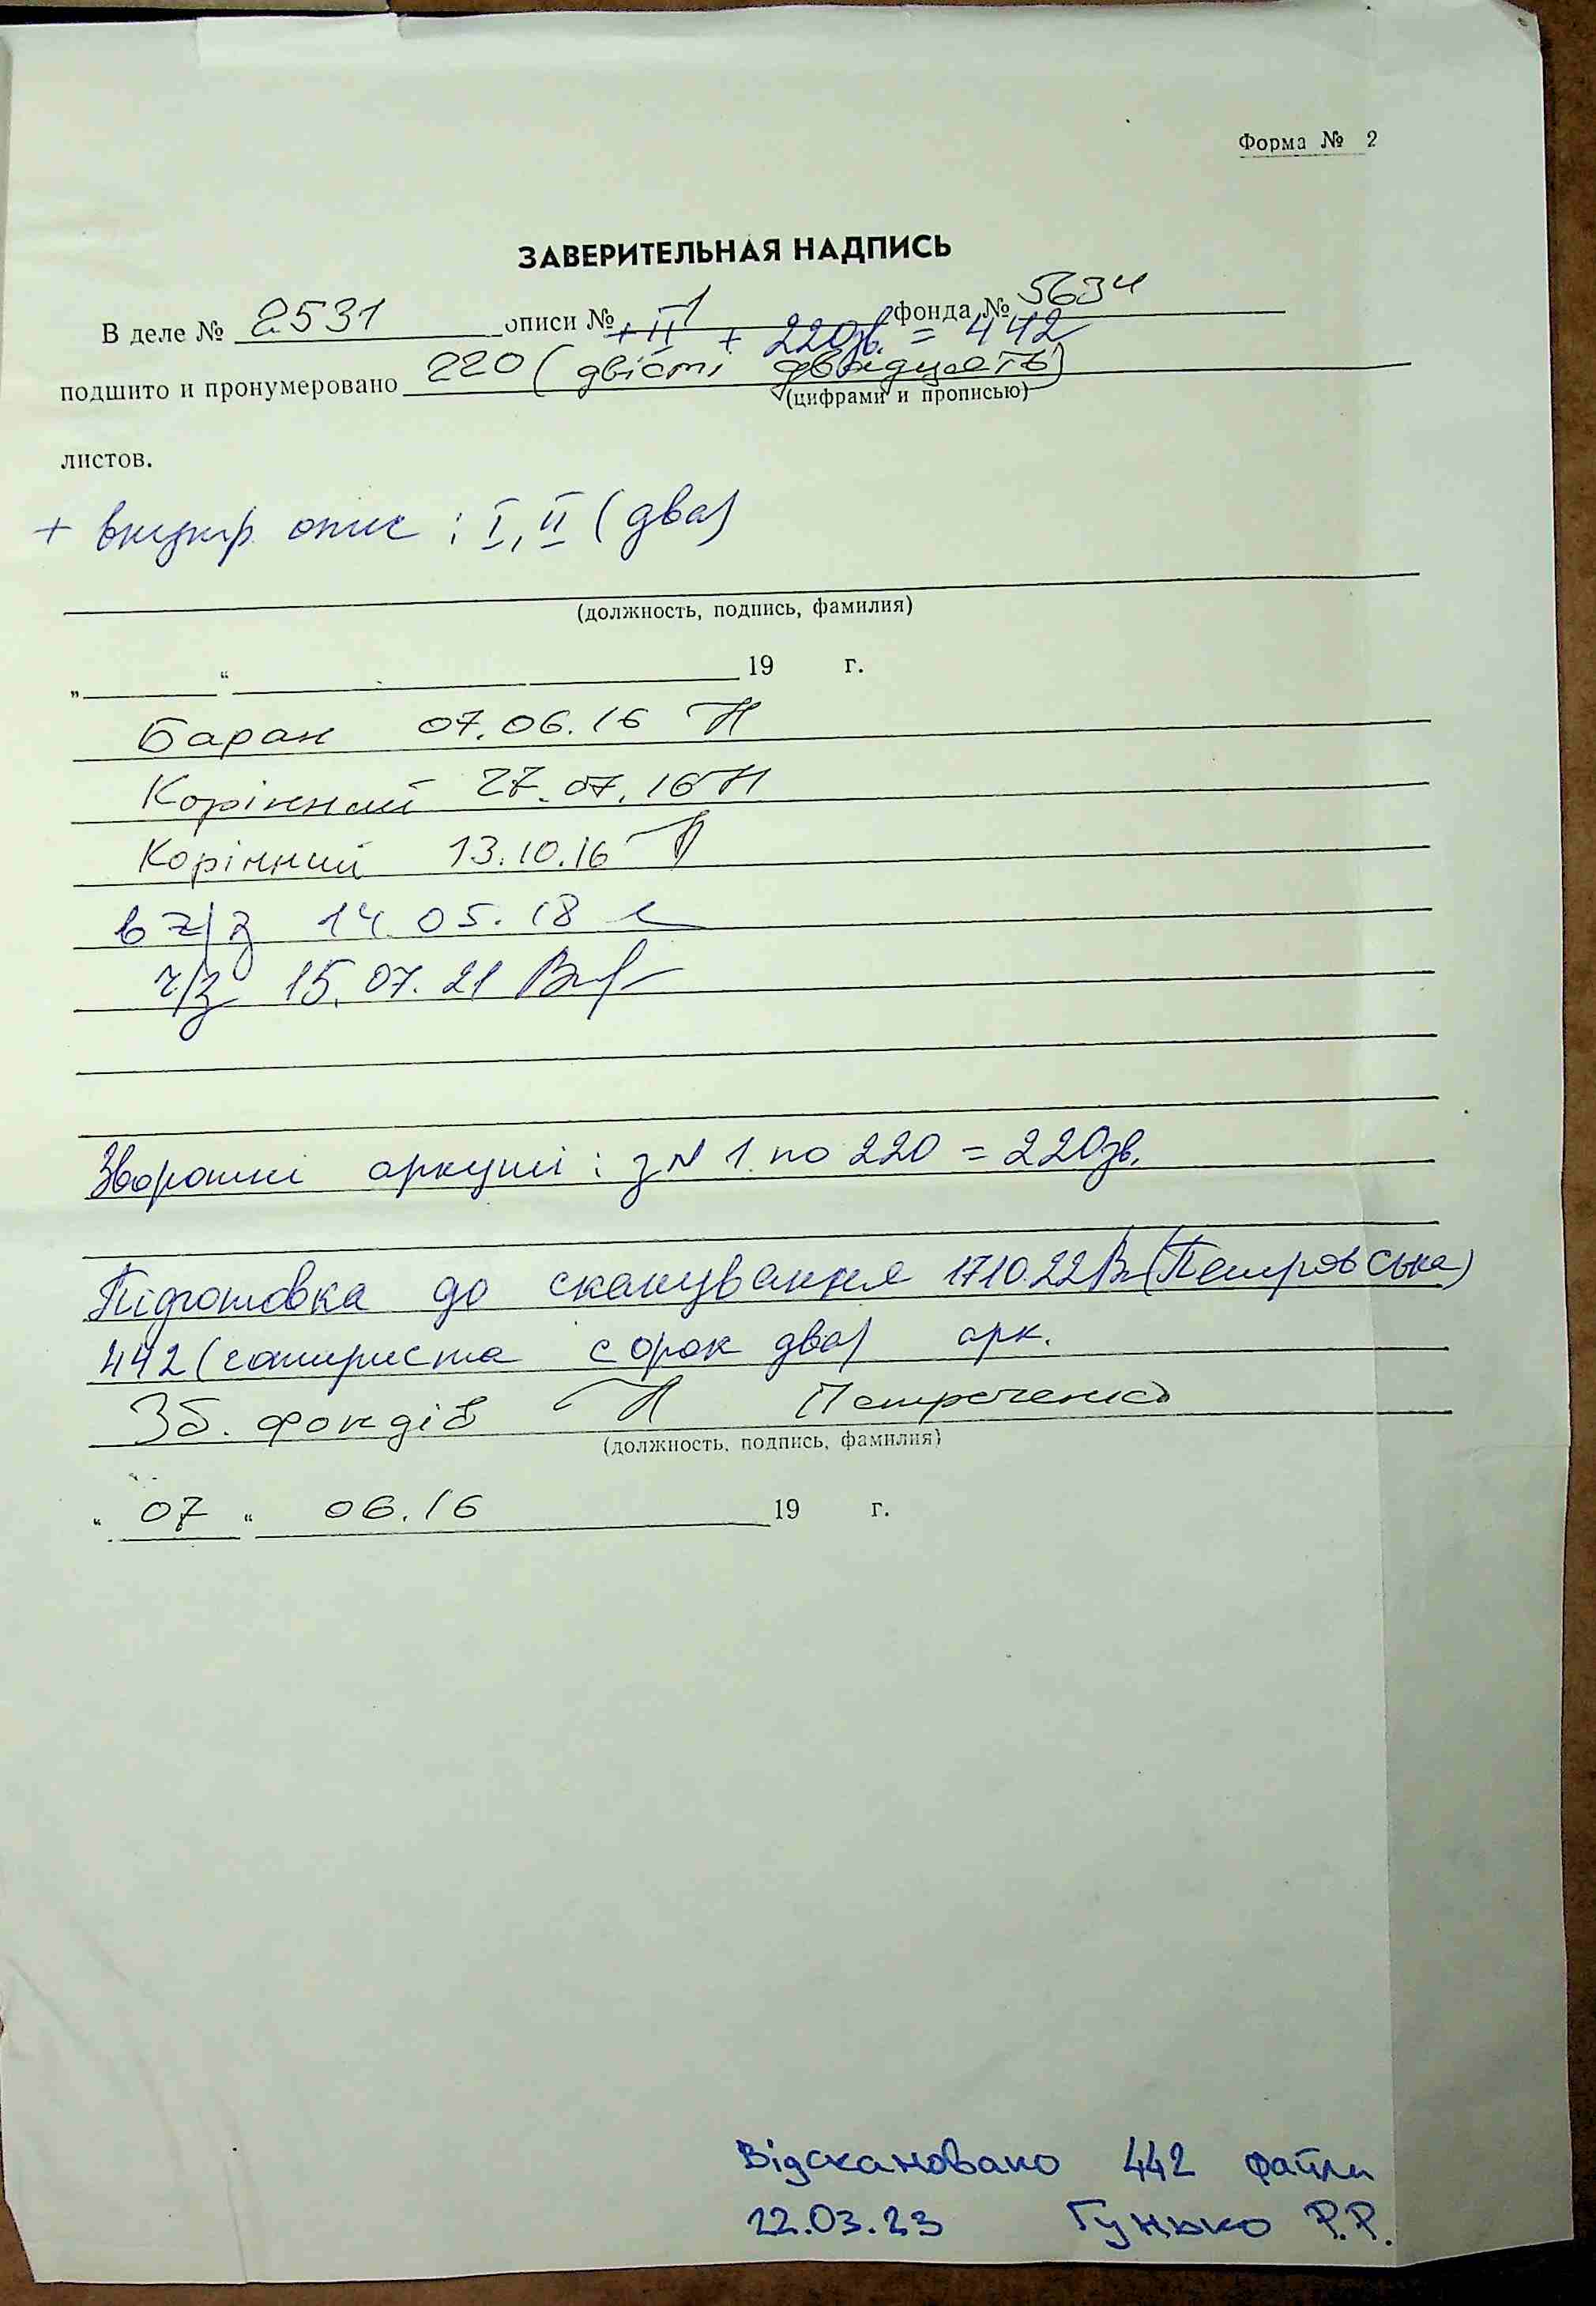 Форма № 2
ЗАВЕРИТЕЛЬНАЯ НАДПИСЬ
В деле № 2531 описи № 1 фонда № 5634
+ II + 220зв. = 442
подшито и пронумеровано 220 (двісті двадцять)
(цифрами и прописью)
листов.
+ внутр. опис : I, II (два)
(должность, подпись, фамилия)
„ “ 19 г.
Баран 07.06.16
Корінний 27.07.16
Корінний 13.10.16
в ч/з 14.05.18
ч/з 15.07.21
Зворотні аркуші : з № 1 по 220 = 220зв.
Підготовка до сканування 17.10.22 (Петровська)
442 (чотириста сорок два) арк.
Зб. фондів Петреченко
(должность, подпись, фамилия)
“ 07 “ 06.16 19 г.
Відскановано 442 файли
22.03.23 Гунько Р.Р.